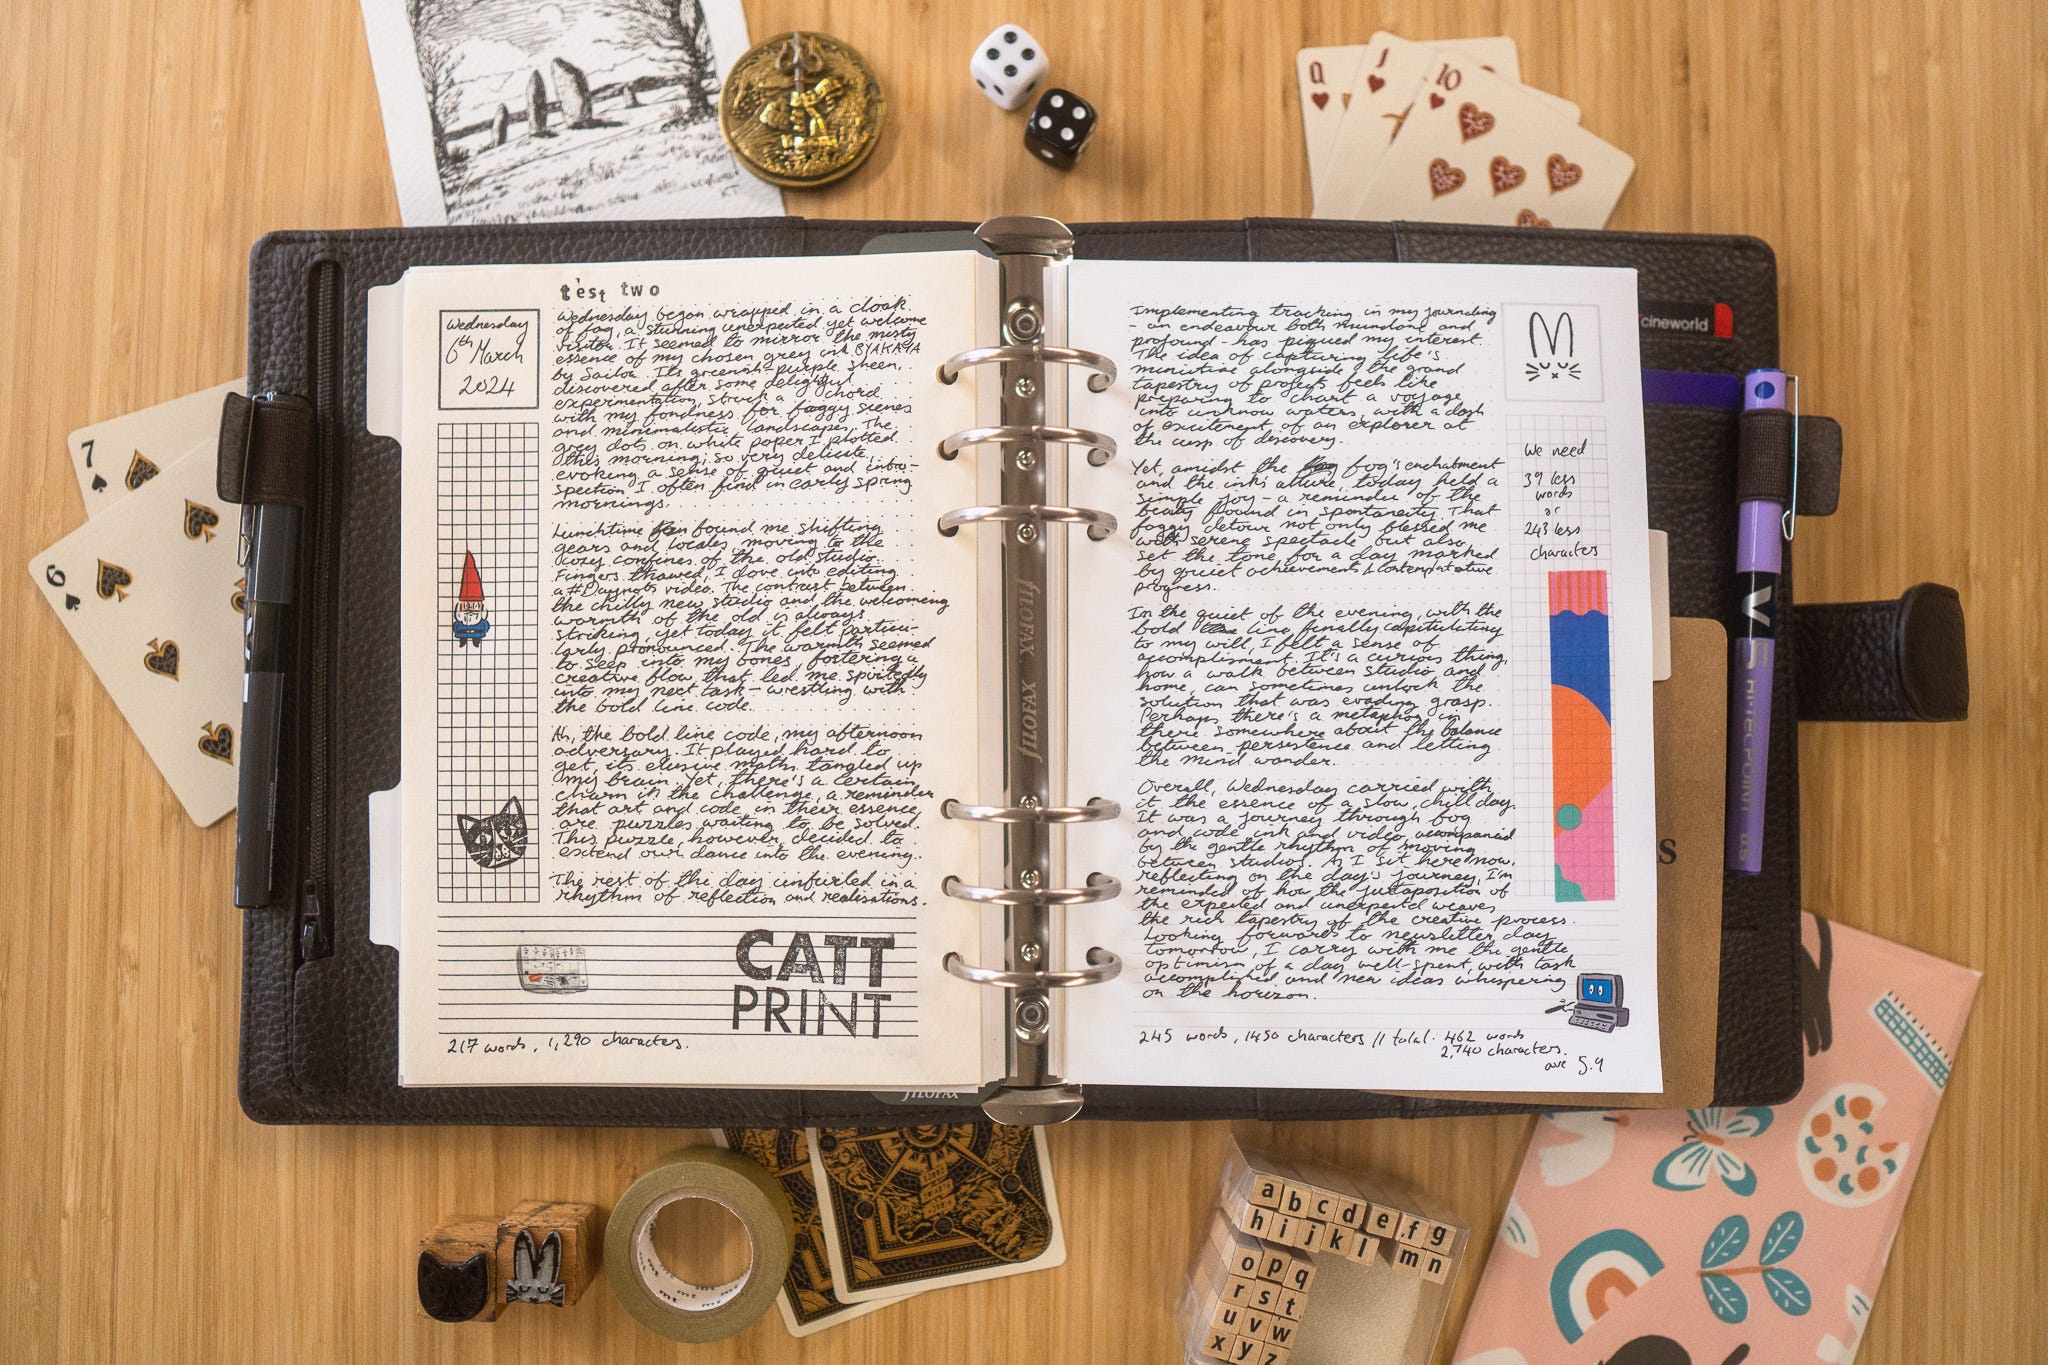 Q
J
10
7
6
cineworld
test two
Wednesday
6th March
2024
Wednesday began wrapped in a cloak
of fog, a stunning unexpected yet welcome
visitor. It seemed to mirror the misty
essence of my chosen grey ink. BYAKAYA
by Sailor. Its greenish-purple sheen,
discovered after some delightful
experimentation, struck a chord
with my fondness for foggy scenes
and minimalistic landscapes. The
grey dots on white paper I plotted
this morning, so very delicate,
evoking a sense of quiet and intro-
spection I often find in early spring
mornings.
Lunchtime found me shifting
gears and locales moving to the
cozy confines of the old studio.
Fingers thawed, I dove into editing
a #Daynots video. The contrast between
the chilly new studio and the welcoming
warmth of the old is always
striking, yet today it felt particu-
larly pronounced. The warmth seemed
to seep into my bones, fostering a
creative flow that led me spiritedly
into my next task - wrestling with
the bold line code.
Ah, the bold line code, my afternoon
adversary. It played hard to
get, its elusive maths tangled up
my brain. Yet, there's a certain
charm in the challenge, a reminder
that art and code, in their essence,
are puzzles waiting to be solved.
This puzzle, however, decided to
extend our dance into the evening.
The rest of the day unfurled in a
rhythm of reflection and realisations.
CATT
PRINT
217 words, 1,290 characters.
filofax
filofax
filofax
Implementing tracking in my journaling
- an endeavour both mundane and
profound - has piqued my interest.
The idea of capturing life's
minutiae alongside the grand
tapestry of projects feels like
preparing to chart a voyage
into unknow waters, with a dash
of excitement of an explorer at
the cusp of discovery.
Yet, amidst the fog's enchatment
and the ink's allure, today held a
simple joy - a reminder of the
beauty found in spontaneity. That
foggy detour not only blessed me
with serene spectacle but also
set the tone for a day marked
by quiet achievements & contemplative
progress.
In the quiet of the evening, with the
bold line finally capitulating
to my will, I felt a sense of
accomplisment. It's a curious thing,
how a walk between studio and
home, can sometimes unlock the
solution that was evading grasp.
Perhaps there's a metaphor in
there somewhere about the balance
between persistence and letting
the mind wander.
Overall, Wednesday carried with
it the essence of a slow, chill day.
It was a journey through fog
and code, ink and video, accompanied
by the gentle rhythm of moving
between studios. As I sit here now,
reflecting on the day's journey, I'm
reminded of how the juxtaposition of
the expected and unexpected weaves
the rich tapestry of the creative process.
Looking forwards to newsletter day
tomorrow, I carry with me the gentle
optimism of a day well-spent, with task
accomplished and new ideas whispering
on the horizon.
245 words, 1450 characters // total: 462 words
2,740 characters.
ave 5.9
M
We need
39 less
words
or
243 less
characters
V5 HI-TECPOINT 0.5
S
mt mt mt
a b c d e f g
h i j k l m n
o p q
r s t
u v w
x y z